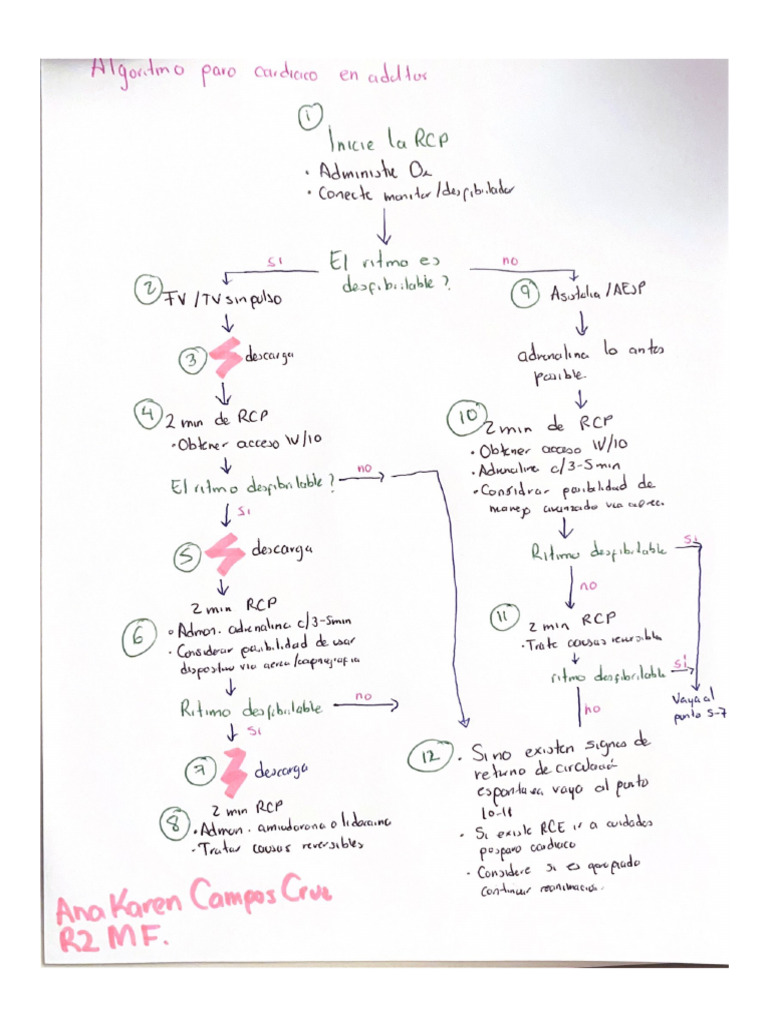 Algoritmo paro cardiaco en adultos
1
Inicie la RCP
• Administre O₂
• Conecte monitor/desfibrilador
El ritmo es
desfibrilable?
si
no
2
FV /TV sin pulso
3
descarga
4
2 min de RCP
• Obtener acceso IV/IO
El ritmo desfibrilable?
no
si
5
descarga
6
2 min RCP
• Admon. adrenalina c/3-5min
• Considerar posibilidad de usar
dispositivo via aerea/capnografia
Ritmo desfibrilable
no
si
7
descarga
8
2 min RCP
• Admon. amiodorona o lidocaina
• Tratar causas reversibles
9
Asistolia /AESP
adrenalina lo antes
posible.
10
2 min de RCP
• Obtener acceso IV/IO
• Adrenalina c/3-5min
• Considrar posibilidad de
manejo avanzado via aerea.
Ritmo desfibrilable
si
no
11
2 min RCP
• Trate causas reversibles
ritmo desfibrilable
si
no
Vaya al
punto 5-7
12
• Si no existen signos de
retorno de circulación
espontanea vaya al punto
10-11
• Si existe RCE ir a cuidados
posparo cardiaco
• Considere si es apropiado
continuar reanimacion.
Ana Karen Campos Cruz
R2 MF.